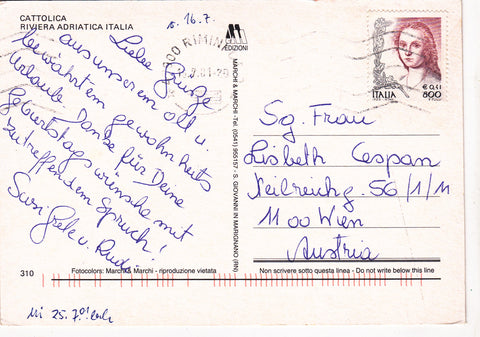 CATTOLICA
RIVIERA ADRIATICA ITALIA
16.7.
Liebe Grüße
aus unserem alt u.
bewährtem gewohnheits
Urlaub. Danke für Deine
Geburtstagswünsche mit
zutreffendem Spruch!
Grete u. Rudi
310
Fotocolors: Marchi & Marchi - riproduzione vietata
25.7.01
RIMINI
EDIZIONI
MARCHI & MARCHI - Tel. (0541) 955157 - S. GIOVANNI IN MARIGNANO (RN)
ITALIA
€ 0,41
800
Sg. Frau
Lisbeth Cespan
Neilreichg. 56/1/11
1100 Wien
Austria
Non scrivere sotto questa linea - Do not write below this line